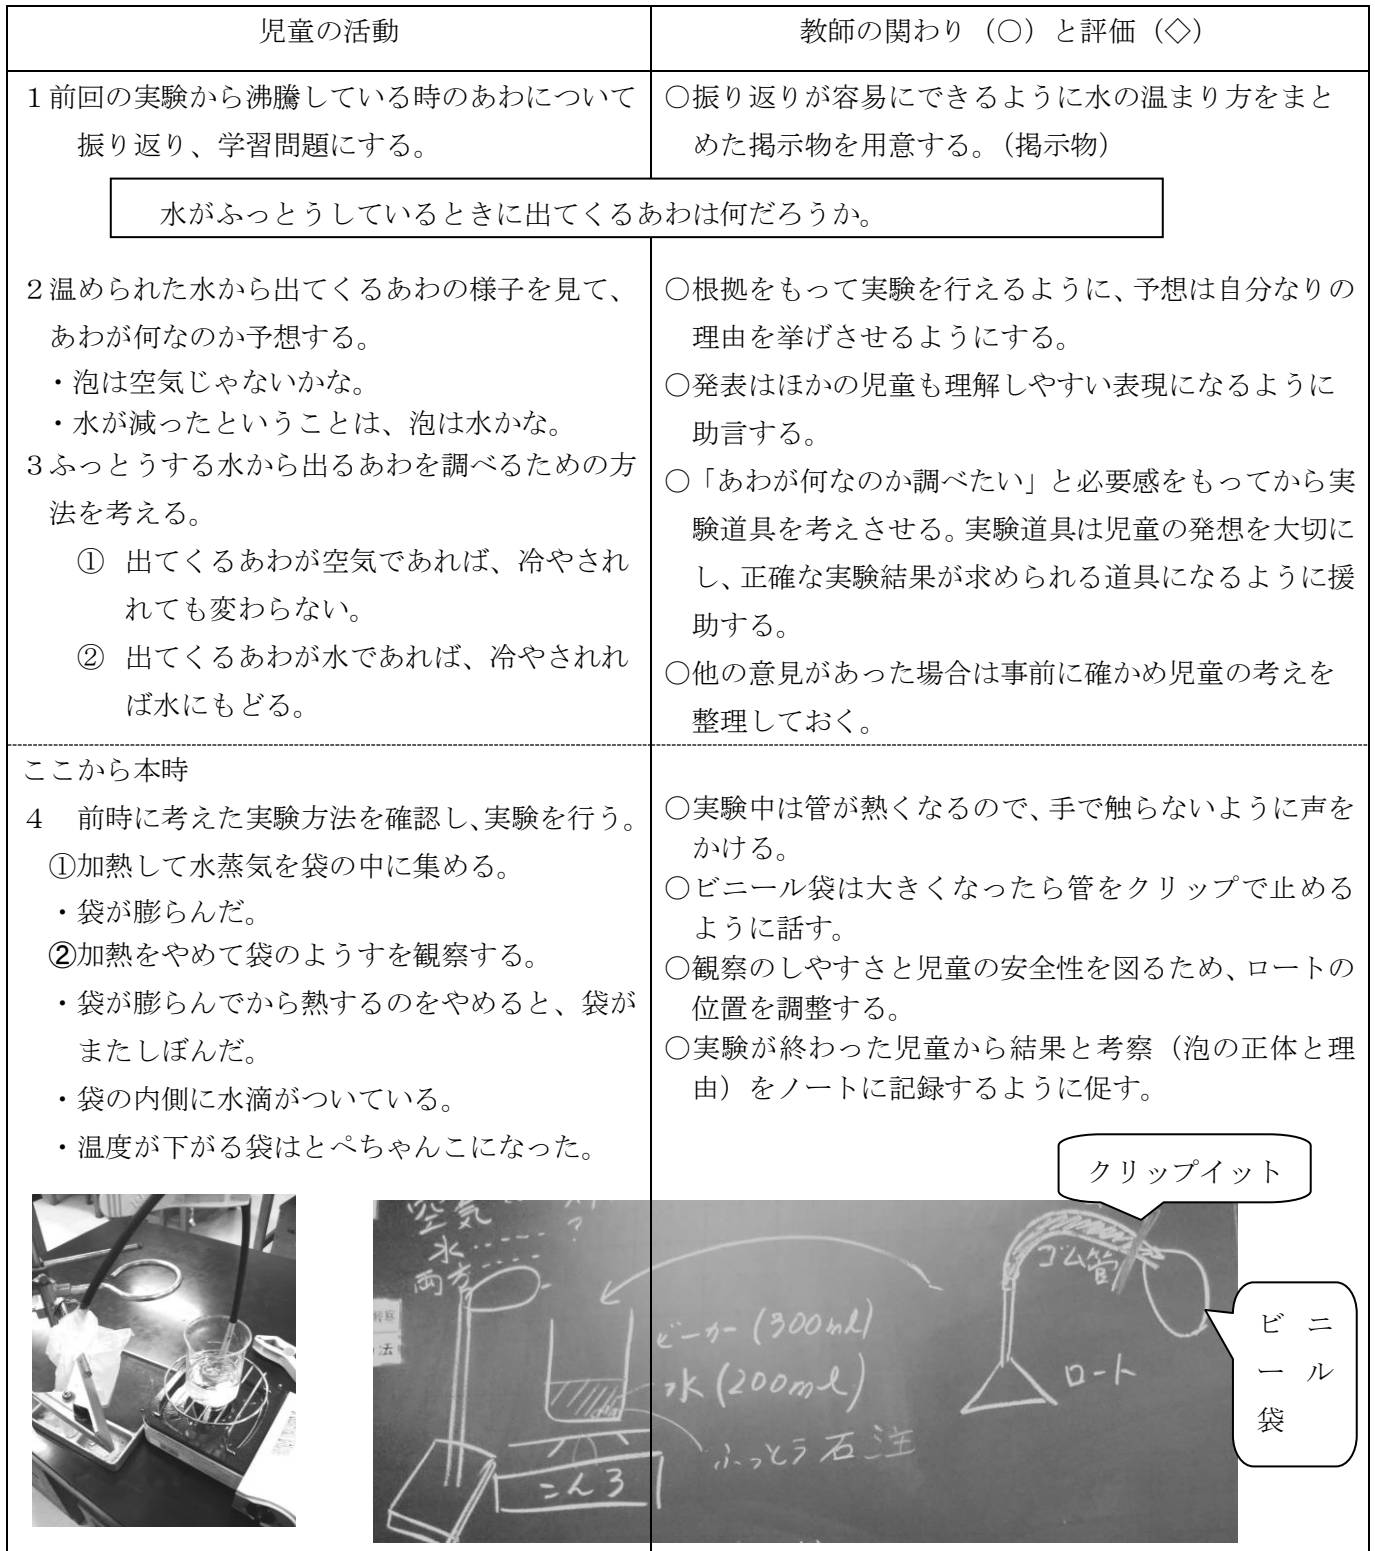 児童の活動
教師の関わり（○）と評価（◇）
１前回の実験から沸騰している時のあわについて
振り返り、学習問題にする。
○振り返りが容易にできるように水の温まり方をまと
めた掲示物を用意する。（掲示物）
水がふっとうしているときに出てくるあわは何だろうか。
２温められた水から出てくるあわの様子を見て、
あわが何なのか予想する。
・泡は空気じゃないかな。
・水が減ったということは、泡は水かな。
３ふっとうする水から出るあわを調べるための方
法を考える。
① 出てくるあわが空気であれば、冷やされ
れても変わらない。
② 出てくるあわが水であれば、冷やされれ
ば水にもどる。
○根拠をもって実験を行えるように、予想は自分なりの
理由を挙げさせるようにする。
○発表はほかの児童も理解しやすい表現になるように
助言する。
○「あわが何なのか調べたい」と必要感をもってから実
験道具を考えさせる。実験道具は児童の発想を大切に
し、正確な実験結果が求められる道具になるように援
助する。
○他の意見があった場合は事前に確かめ児童の考えを
整理しておく。
ここから本時
４　前時に考えた実験方法を確認し、実験を行う。
①加熱して水蒸気を袋の中に集める。
・袋が膨らんだ。
②加熱をやめて袋のようすを観察する。
・袋が膨らんでから熱するのをやめると、袋が
またしぼんだ。
・袋の内側に水滴がついている。
・温度が下がる袋はとぺちゃんこになった。
○実験中は管が熱くなるので、手で触らないように声を
かける。
○ビニール袋は大きくなったら管をクリップで止める
ように話す。
○観察のしやすさと児童の安全性を図るため、ロートの
位置を調整する。
○実験が終わった児童から結果と考察（泡の正体と理
由）をノートに記録するように促す。
クリップイット
空気
水‥‥‥
両方‥‥
?
ビーカー (300ml)
水 (200ml)
ふっとう石 注
こんろ
ゴム管
ロート
ビニ
ール
袋